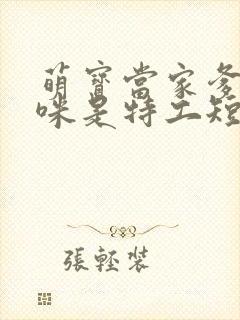 萌寶當家爹
咪是特工短
張輕裝